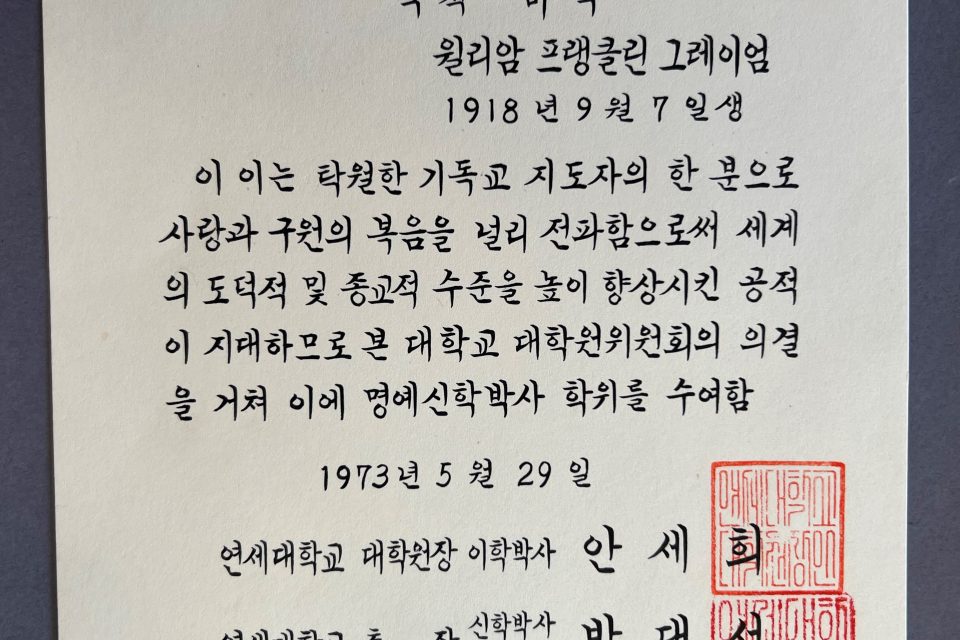 윌리암 프랭클린 그레이엄
1918 년 9 월 7 일 생
이 이는 탁월한 기독교 지도자의 한 분으로
사랑과 구원의 복음을 널리 전파함으로써 세계
의 도덕적 및 종교적 수준을 높이 향상시킨 공적
이 지대하므로 본 대학교 대학원위원회의 의결
을 거쳐 이에 명예신학박사 학위를 수여함
1973년 5 월 29 일
연세대학교 대학원장 이학박사 안 세 희
연세대학교 총 장 신학박사 박 대 선